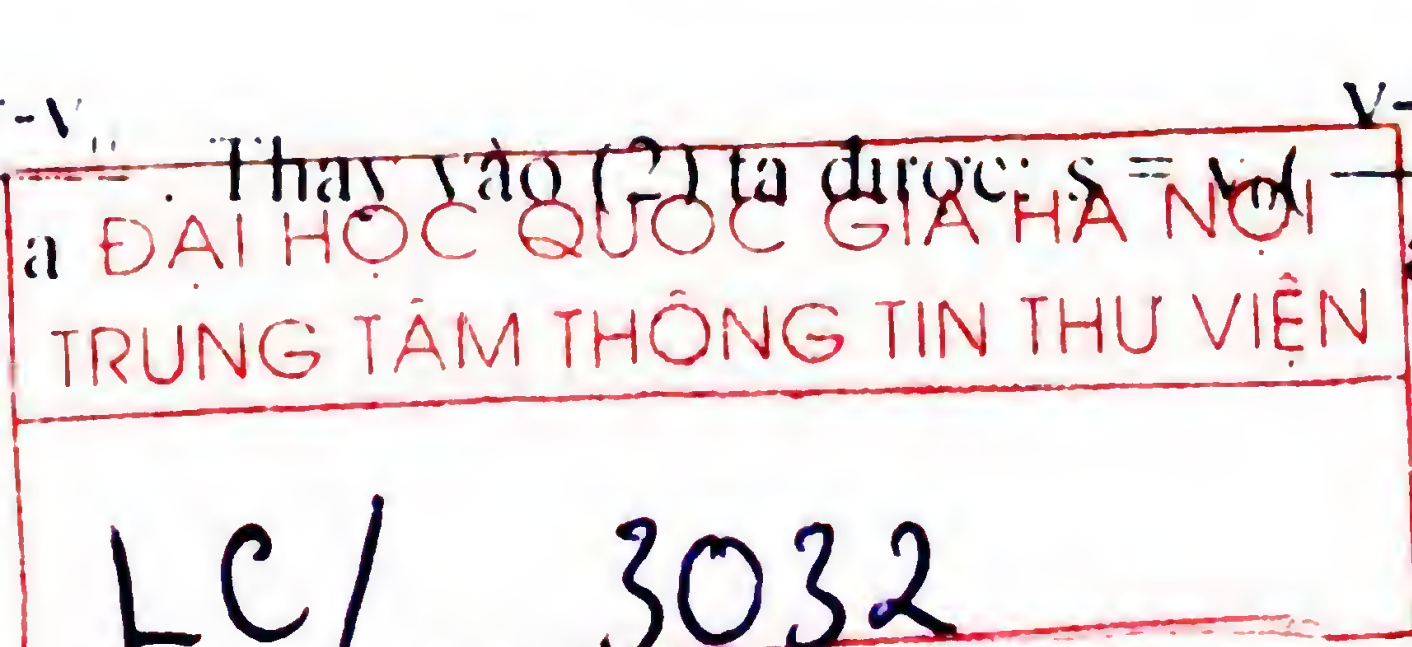 -v₀
. Thay vào (2) ta được: s = v₀(
v-
a
ĐẠI HỌC QUỐC GIA HÀ NỘI
TRUNG TÂM THÔNG TIN THƯ VIỆN
LC/ 3032